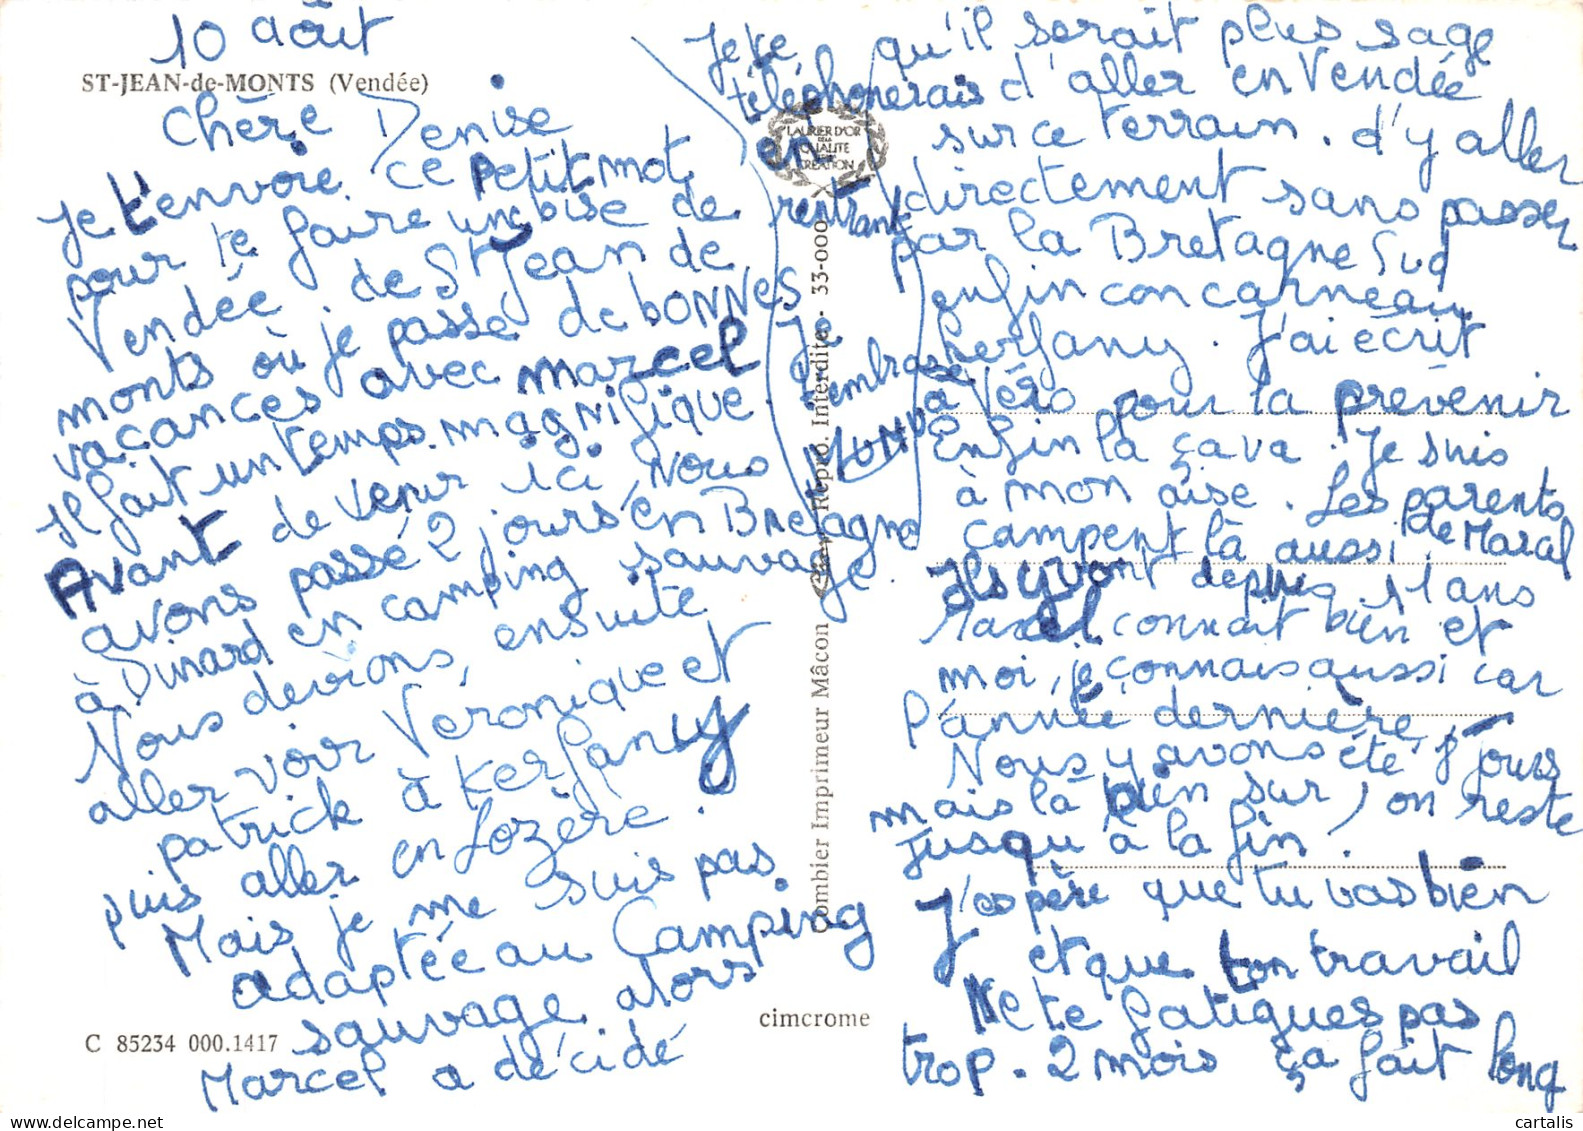 10 août
ST-JEAN-de-MONTS (Vendée)
Chère Denise
Je t'envoie ce petit mot
pour te faire une bise de
Vendée. de St Jean de
monts où je passe de bonnes
vacances avec marcel
Il fait un temps magnifique.
Avant de venir ici, nous
avons passé 2 jours en Bretagne
à Dinard en camping sauvage.
Nous devions, ensuite
aller voir Véronique et
patrick à Kerfany
puis aller en Lozère.
Mais je me suis pas
adaptée au Camping
sauvage alors
Marcel a décidé
C 85234 000.1417
qu'il serait plus sage
d'aller en Vendée
sur ce terrain. d'y aller
directement sans passer
par la Bretagne Sud
enfin concarneau
Kerfany. J'ai écrit
à Véro pour la prévenir
Enfin là ça va. Je suis
à mon aise. Les parents
de Marcel
campent là aussi.
Ils y vont depuis 11 ans
Marcel connait bien et
moi, je connais aussi car
l'année dernière,
Nous y avons été 8 jours
mais là bien sur, on reste
jusqu'à la fin.
J'espère que tu vas bien
et que ton travail
Ne te fatigues pas
trop. 2 mois ça fait long
Je te
téléphonerais
en
rentrant
Je
t'embrasse
LAURIER D'OR
DE LA
QUALITE
CREATION
Combier Imprimeur Mâcon
Repro. Interdite - 33-000
cimcrome
cartalis